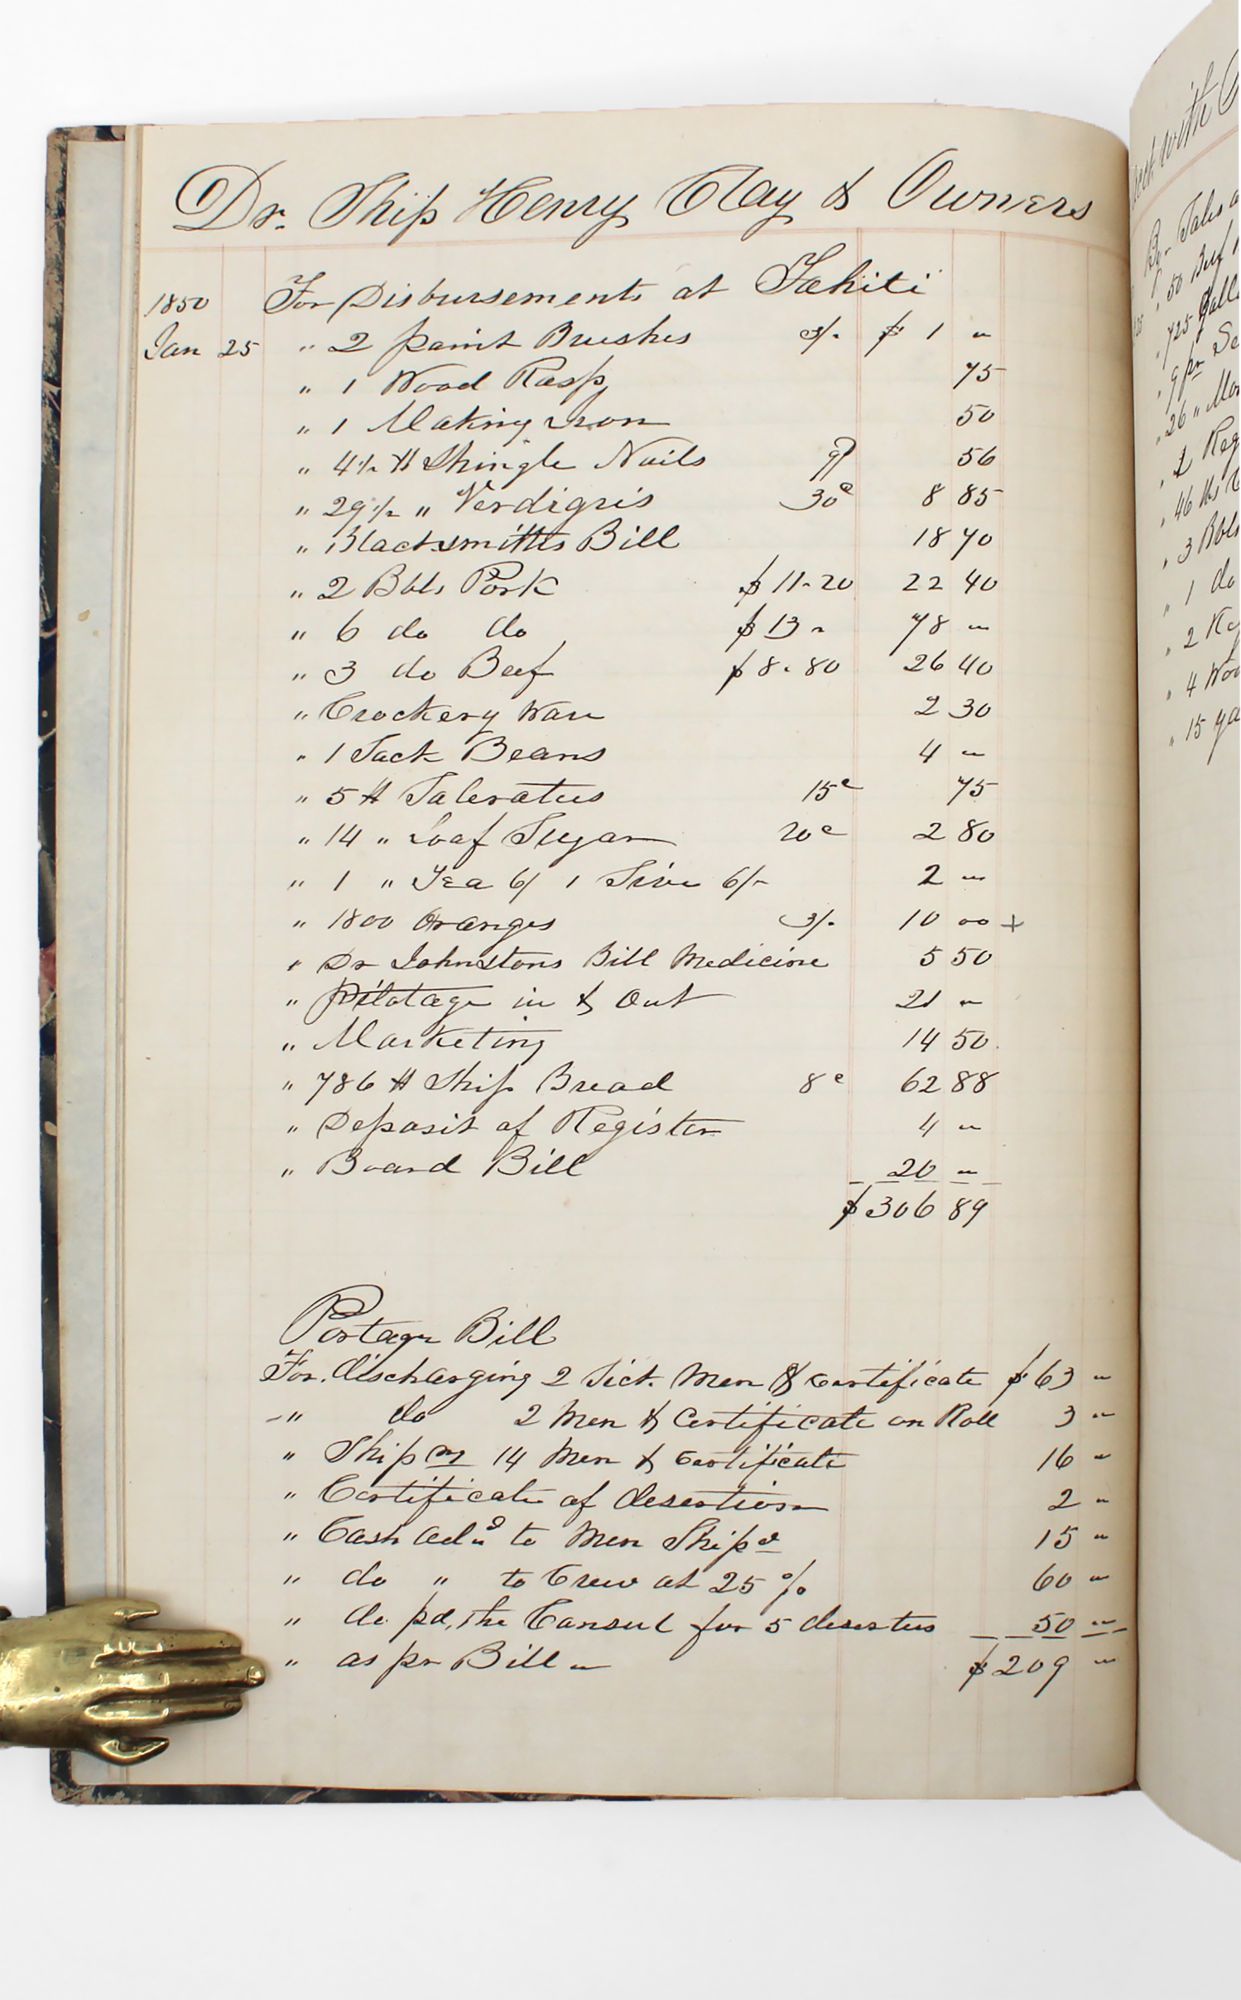 Dr. Ship Henry Clay & Owners
1850 For Disbursements at Tahiti
Jan 25 " 2 paint Brushes 3/- $ 1 "
" 1 Wood Rasp 75
" 1 Making Iron 50
" 4 1/2 # Shingle Nails 56
" 29 1/2 " Verdigris 30c 8 85
" Blacksmiths Bill 18 70
" 2 Bbls Pork $ 11-20 22 40
" 6 do do $ 13 " 78 "
" 3 do Beef $ 8.80 26 40
" Crockery Ware 2 30
" 1 Sack Beans 4 "
" 5 # Saleratus 15c 75
" 14 " Loaf Sugar 20c 2 80
" 1 " Tea 6/ 1 Sive 6/- 2 "
" 1800 Oranges 3/- 10 00 +
" Dr Johnstons Bill Medicine 5 50
" Pilotage in & Out 21 "
" Marketing 14 50
" 786 # Ship Bread 8c 62 88
" Deposit of Register 4 "
" Board Bill 20 "
$ 306 89
Portage Bill
For discharging 2 Sick Men & Certificate $ 63 "
" do 2 Men & Certificate on Roll 3 "
" Ship ng 14 Men & Certificate 16 "
" Certificate of desertion 2 "
" Cash adv d to Men Ship d 15 "
" do " to Crew at 25 % 60 "
" do pd. the Consul for 5 deserters 50 "
" as pr Bill " $ 209 "
with
By Sales
" 50 Beef
" 725 Gall
" 9 pr
" 26 "
" 1 Keg
" 46 lbs
" 3 Bbls
" 1 do
" 2
" 4
" 15